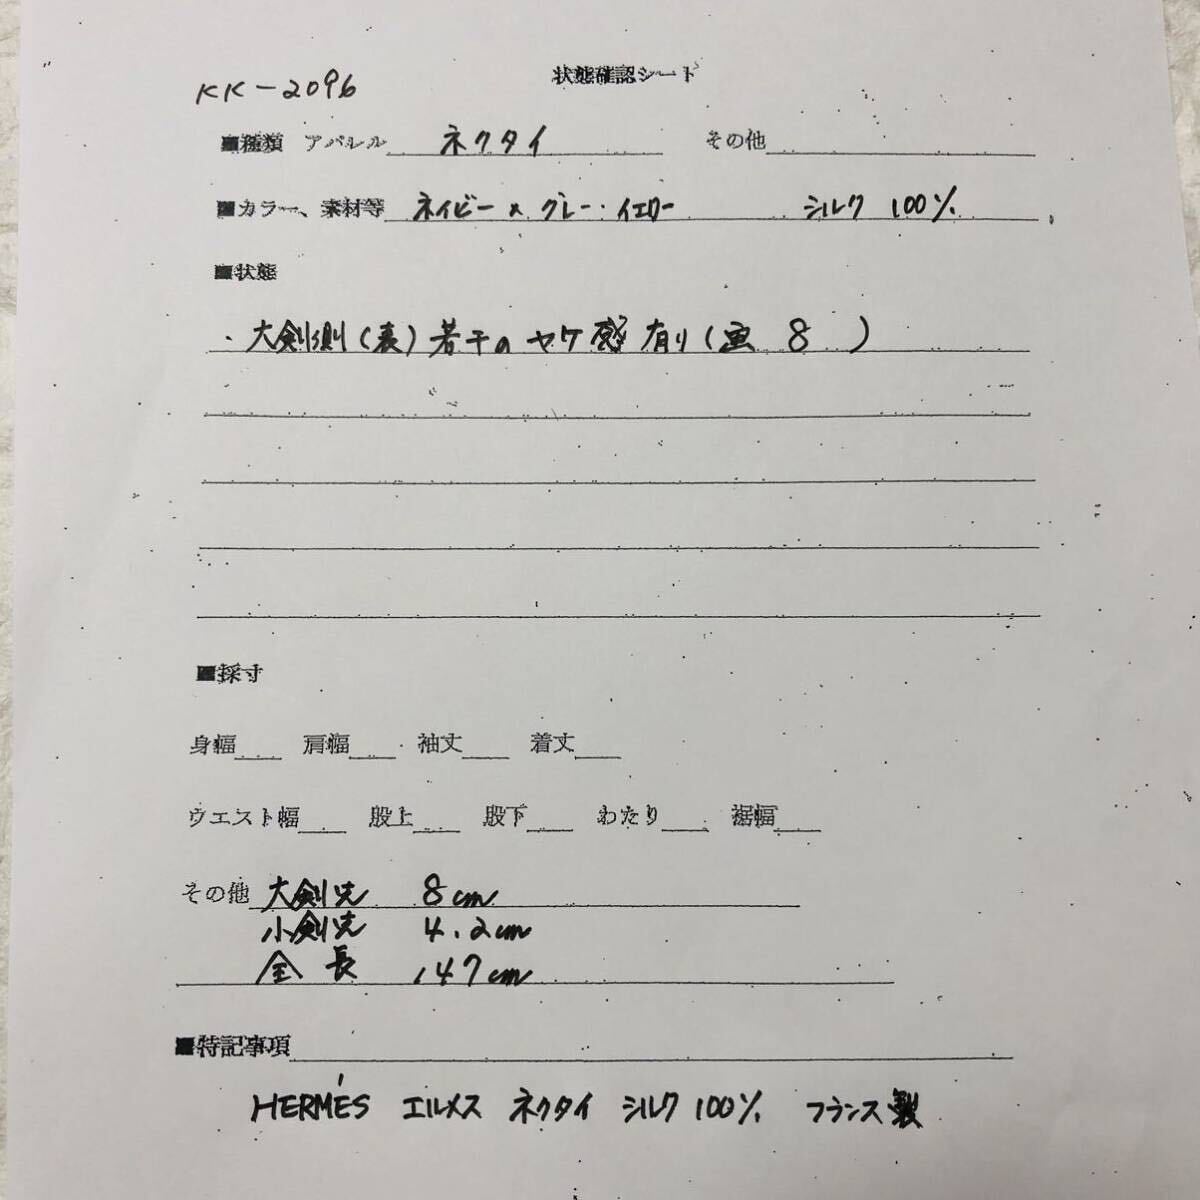 状態確認シート
KK-2096
■種類 アパレル ネクタイ その他
■カラー、素材等 ネイビー×グレー・イエロー シルク 100%
■状態
・大剣側(表)若干のヤケ感有り(画 8 )
■採寸
身幅 肩幅 袖丈 着丈
ウエスト幅 股上 股下 わたり 裾幅
その他 大剣先 8cm
小剣先 4.2cm
全長 147cm
■特記事項
HERMÉS エルメス ネクタイ シルク100% フランス製